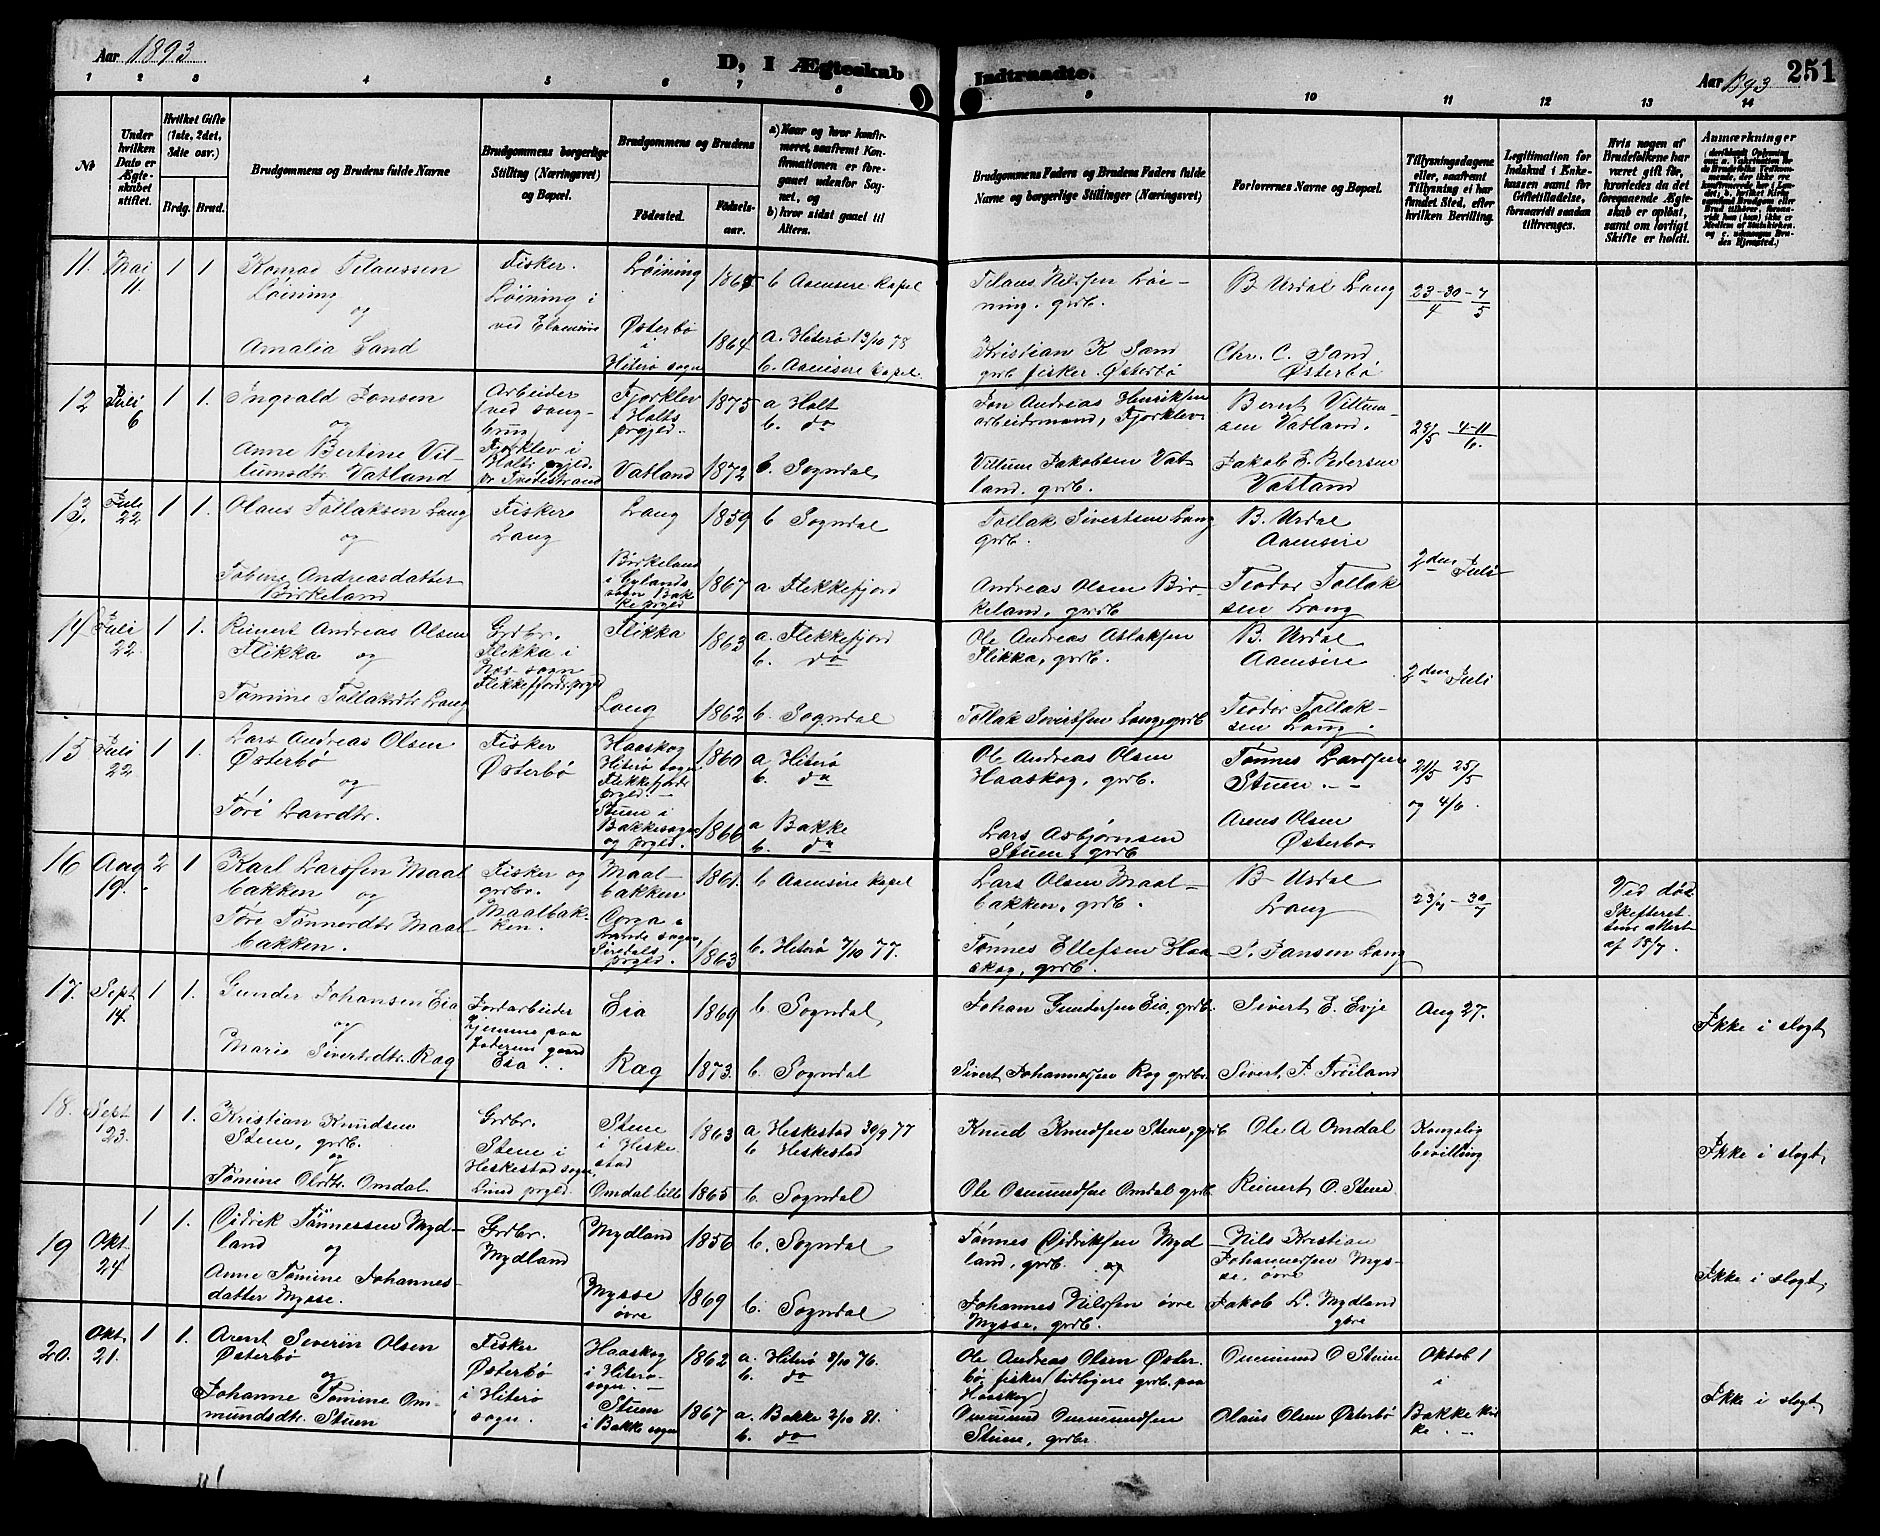 Aar 1893
D, 1 Ægteskab Indtraadte.
Aar 1893
251
1 2 3 4 5 6 7 8 9 10 11 12 13 14
No
Under hvilken Dato er Ægteskabet stiftet.
Hvilket Gifte (1ste, 2det, 3die osv.)
Brdg. Brud.
Brudgommens og Brudens fulde Navne
Brudgommens borgerlige Stilling (Næringsvei) og Bopæl.
Brudgommens og Brudens
Fødested.
Fødselsaar.
a) Naar og hvor konfirmeret, saafremt Konfirmationen er foregaaet udenfor Sognet, og
b) hvor sidst gaaet til Alters.
Brudgommens Faders og Brudens Faders fulde Navne og borgerlige Stillinger (Næringsvei)
Forlovernes Navne og Bopæl.
Tillysningsdagene eller, saafremt Tillysning ei har fundet Sted, efter hvilken Bevilling.
Legitimation for Indskud i Enkekassen samt for Giftetilladelse, forsaavidt saadan tiltrænges.
Hvis nogen af Brudefolkene har været gift før, hvorledes da det foregaaende Ægteskab er opløst, samt om lovligt Skifte er holdt.
Anmærkninger
11. Mai 11 1 1
Konrad Tilaussen
Løining
og
Amalia Sand
Fisker.
Løining i
Løining
Østerbø
i
Hiterø sogn
1864
b Aaensire Kapel
a. Hiterø 13/10 78
b. Aaensire Kapel.
Tilaus Nilssen Løining. grdb.
Kristian K Sand
grdb fisker. Østerbø
B. Urdal Laug
Chr. C. Sand,
Østerbø
23-30/4 - 7/5
12 Juli 6 1 1.
Ingvald Jonsen
og
Anne Bertine Vitlumsdtr. Vatland
Arbeider
Fjorklev i
Holts prgjld.
Fjorklev
i Holts
prgjld.
Vatland
1875
1872
a Holt
b. do
b. Sogndal
Jon Andreas Henriksen
arbeidsmand, Fjorklev
Vitlum Jakobsen Vatland. grdb.
Bernt Vitlumsen Vatland.
Jakob E. Pedersen
Vatland
28/5 4-11/6.
13. Juli 22 1 1.
Olaus Tollaksen Laug
og
Tobine Andreasdatter
Birkeland
Fisker
Laug
Laug
Birkeland
i Gylands
sogn Bakke prgjld
1859
1867
b Sogndal
a Flekkefjord
Tollak Sivertsen Laug
grdb.
Andreas Olsen Birkeland, grdb.
B. Urdal
Aaensire
Teodor Tollaksen Laug
2den Juli
14 Juli 22. 1 1.
Reinert Andreas Olsen
Flikka og
Tomine Tollaksdtr Laug
Grdbr.
Flikka i
Nes sogn
Flekkefjords prgld
Flikka
Laug
1863
1862
a. Flekkefjord
b. do
b. Sogndal
Ole Andreas Aslaksen
Flikka, grdb.
Tollak Sivertsen Laug, grdb
B. Urdal
Aaensire
Teodor Tollaksen Laug.
2den Juli
15 Juli 22 1 1.
Lars Andreas Olsen
Østerbø
og
Tøri Larsdtr.
Fisker
Østerbø
Haaskog
Hiterø sogn
Flekkefjords
prgld.
Stuen i
Bakke sogn
og prgld.
1860
1866
a Hiterø
b. do
a Bakke
b. do
Ole Andreas Olsen
Haaskog, grdb.
Lars Asbjørnsen
Stuen, grdb
Tønnes Larssen
Stuen.
Arens Olsen
Østerbø
21/5 25/5
og 4/6.
16 Aug 19. 2 1
Karl Larssen Maalbakken og
Tøri Tønnesdtr Maalbakken.
Fisker og
grdbr.
Maalbakken.
Maalbakken
1861.
1863
b Aaensire Kapel
b. Hiterø 7/10 77.
Lars Olsen Maalbakken, grdb.
Tønnes Ellefsen Haaskog, grdb.
B. Urdal
Laug
S. Jansen Laug
23/7 - 30/7
Ved død
Skifteret
af 18/7.
17. Sept 14. 1 1.
Gunder Johansen Eia
og
Marie Sivertsdtr. Rag
Jordarbeider
hjemme paa
faderens gaard
Eia.
Eia
Rag
1869
1873
b. Sogndal
b. Sogndal
Johan Gundersen Eia, grdbr.
Sivert Johannessen Rag grdbr.
Sivert E. Evje
Sivert. J. Frøiland
Aug 27.
Ikke i slegt
18. Sept 23. 1 1.
Kristian Knudsen
Stene, grdb.
og
Tomine Olsdtr. Omdal.
Grdbr.
Stene i
Heskestad sogn,
Lund prgld.
Stene
i Heskestad
Omdal lille
1863
1865
a Heskestad 30/9 77
b Heskestad
b. Sogndal
Knud Knudsen Stene, grdb
Ole Osmundsen Omdal grdb.
Ole A Omdal
Reinert O. Stene
Kongelig
bevilling
Ikke i slegt
19 Okt. 24 1 1.
Didrik Tønnessen Mydland
og
Anne Tomine Johannesdatter Mysse.
Grdbr.
Mydland
Mydland
Mysse
øvre
1856
1869
b. Sogndal
b. Sogndal
Tønnes Didriksen Mydland, grdb. og
Johannes Nilssen øvre
Mysse, grdb.
Nils Kristian
Johannessen Mysse, øvre
Jakob L. Mydland
Ikke i slegt
20. Okt. 21. 1 1.
Arent Severin Olsen
Østerbø
og
Johanne Tomine Ommundsdtr. Stuen
Fisker
Østerbø
i Hiterø
sogn.
Haaskog
i Hiterø
sogn.
Stuen
i Bakke sogn
1862
1867
a. Hiterø 8/10 76.
b. do
a. Bakke 2/10 81.
b. do
Ole Andreas Olsen Østerbø, fisker (tidligere grdb. paa
Haaskog)
Ommund Ommundsen
Stuen, grdbr.
Ommund O Stuen
Olaus Olsen Østerbø
Oktob 1
i
Bakke kirke.
Ikke i slegt